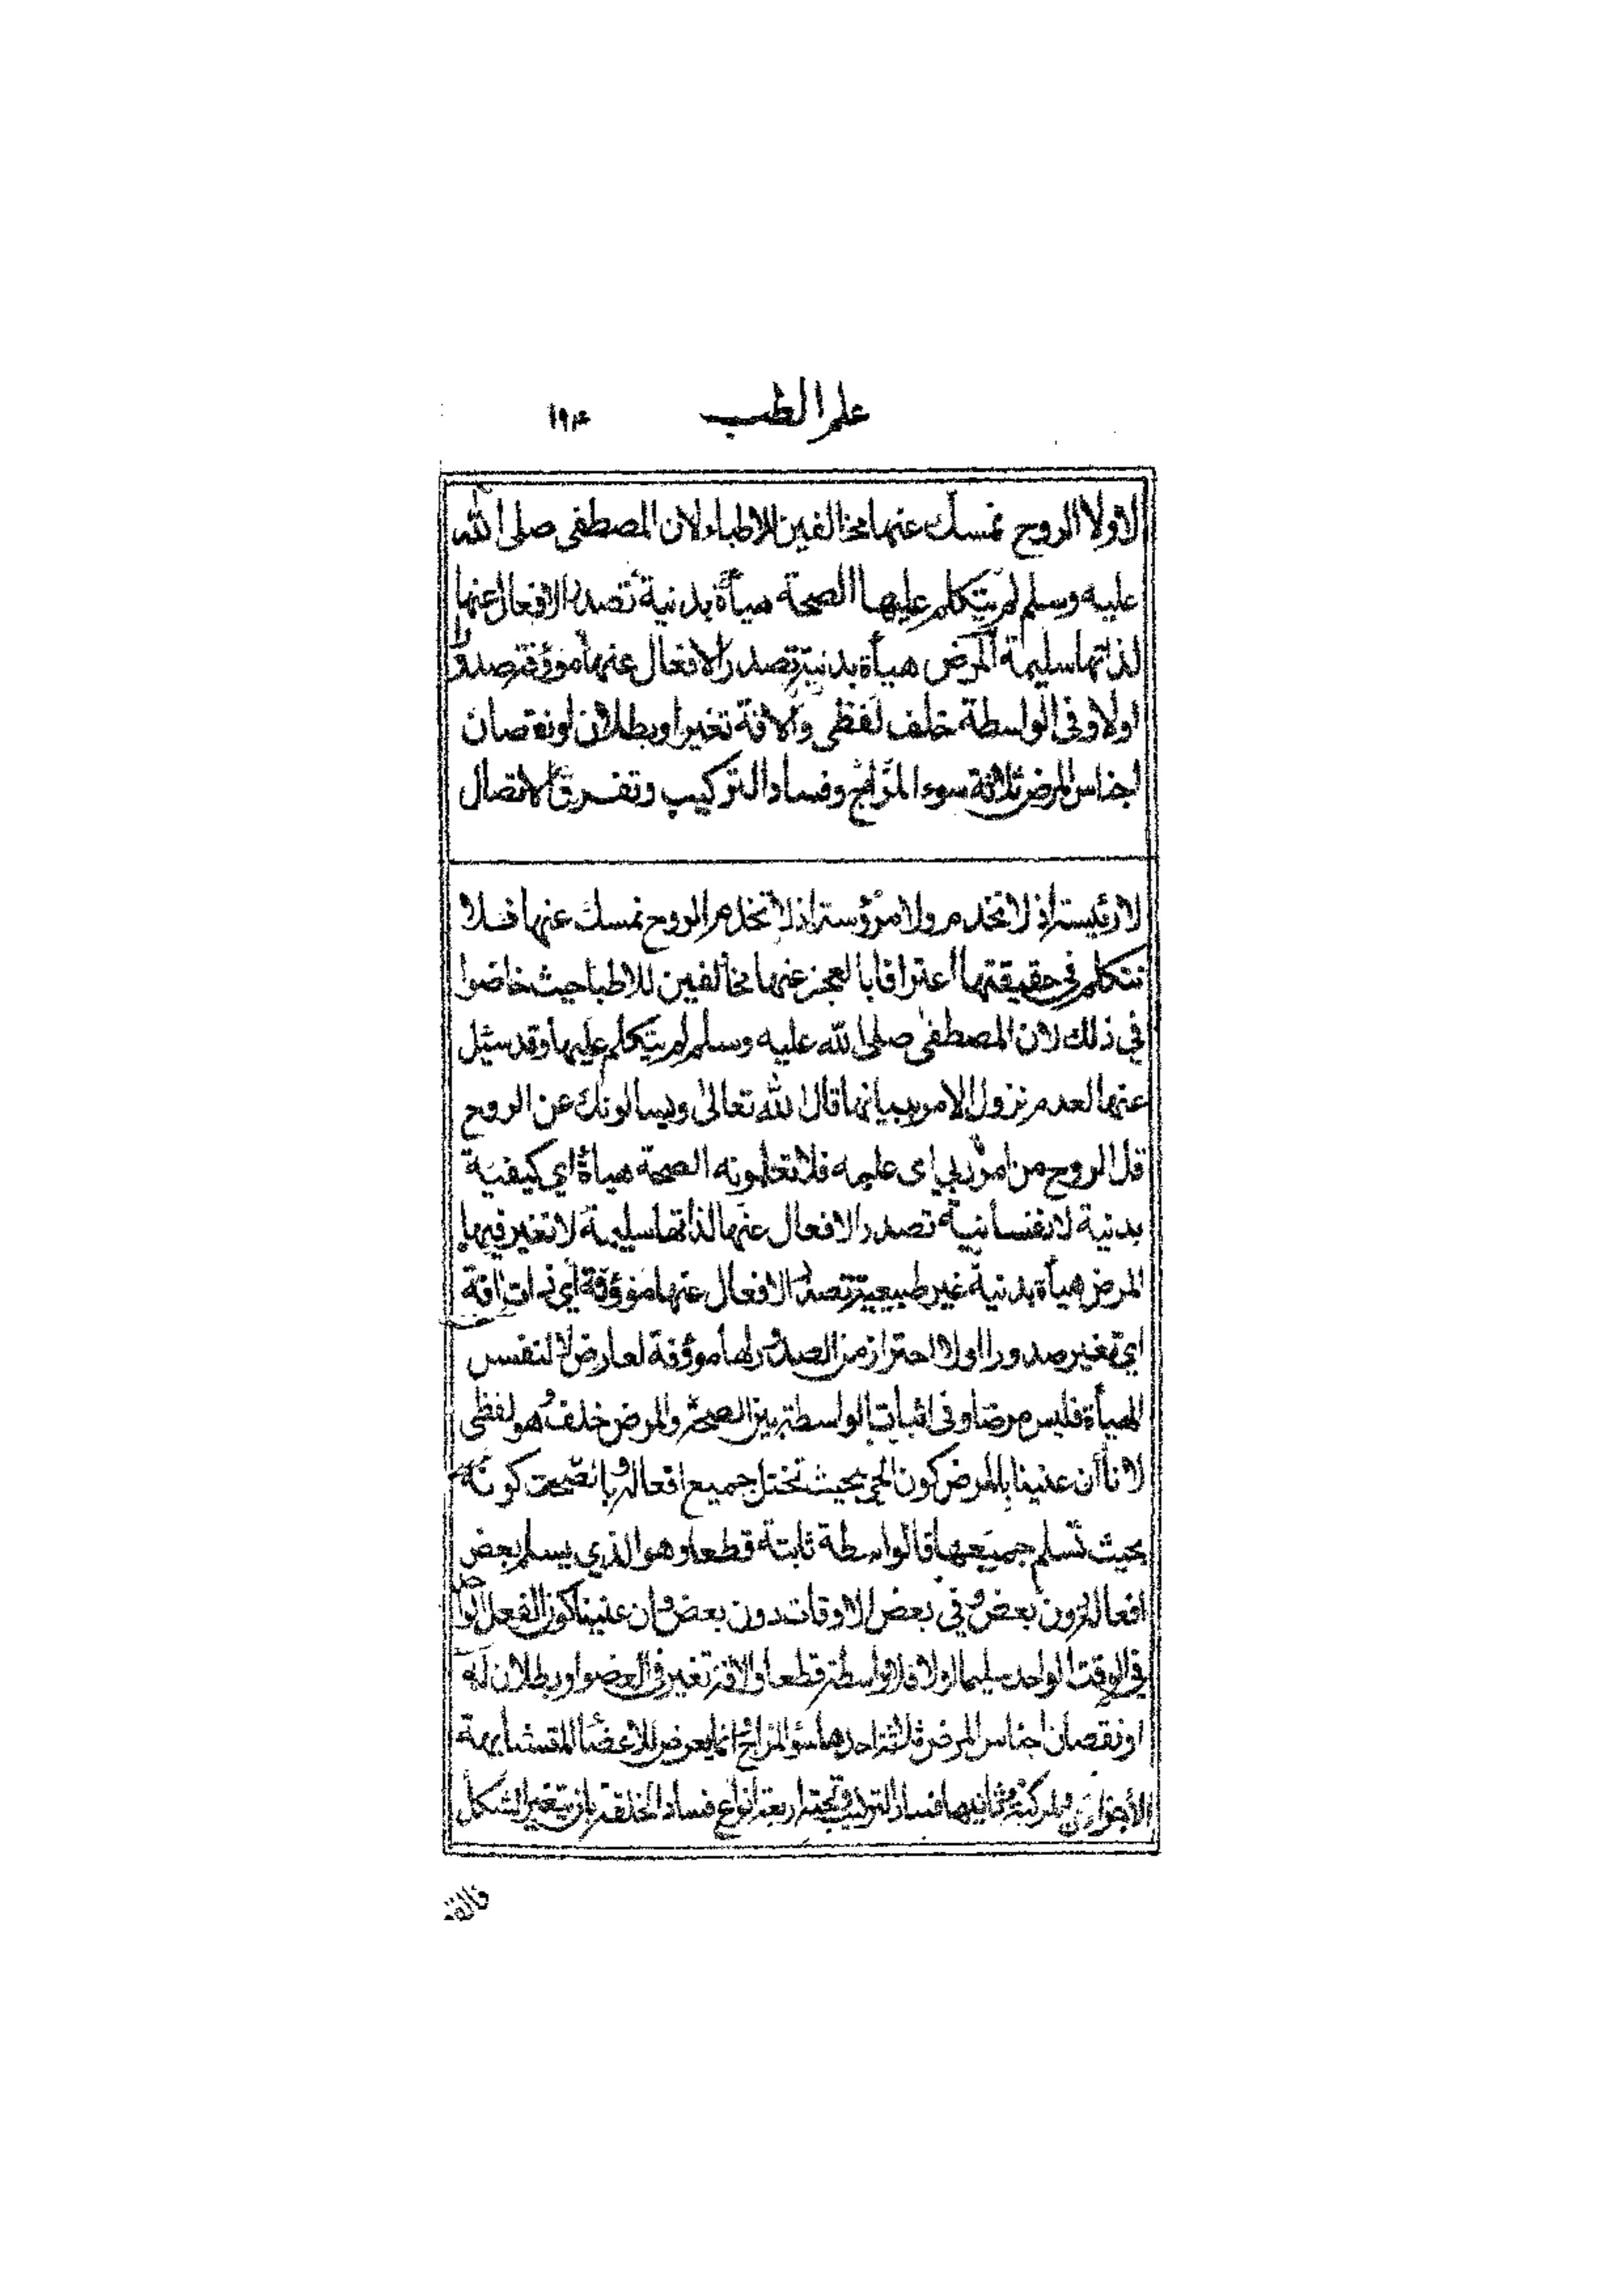 علم الطب ١٩٣
لا ولا الروح نمسك عنها مخالفين للاطباء لان المصطفى صلى الله
عليه وسلم لم يتكلم عليها الصحة هيأة بدنية تصدر الافعال عنها
لذاتها سليمة المرض هيأة بدنية تصدر الافعال عنها مؤفة صدورا
اولا وفى الواسطة خلف لفظي والافة تغير او بطلان او نقصان
اجناس المرض ثلاثة سوء المزاج وفساد التركيب وتفرق الاتصال
لا رئيسة اذ لا تخدم ولا مرؤسة اذ لا تخدم الروح نمسك عنها فلا
نتكلم في حقيقتها اعترافا بالعجز عنها مخالفين للاطبا حيث خاضوا
في ذلك لان المصطفى صلى الله عليه وسلم لم يتكلم عليها وقد سئل
عنها لعدم نزول الامر ببيانها قال الله تعالى ويسألونك عن الروح
قل الروح من امر ربي اى علمه فلا تعلمونه الصحة هيأة اي كيفية
بدنية لا نفسانية تصدر الافعال عنها لذاتها سليمة لا تغير فيها
المرض هيأة بدنية غير طبيعية تصدر الافعال عنها مؤفة اي ذات افة
اي تغير صدورا اولا احتراز من الصدور لها مؤفة لعارض لا لنفس
الهيأة فليس مرضا وفى اثبات الواسطة بين الصحة والمرض خلف وهو لفظي
لانا ان عنينا بالمرض كون الحي بحيث تختل جميع افعاله وبالصحة كونه
بحيث تسلم جميعها فالواسطة ثابتة قطعا وهو الذي يسلم بعض
افعاله دون بعض وفي بعض الاوقات دون بعض وان عنينا كون الفعل الواحد
في الوقت الواحد سليما او لا فلا واسطة قطعا والافة تغير في العضو او بطلان له
او نقصان اجناس المرض ثلاثة احدها سؤ المزاج انما يعرض للأعضا المتشابهة
الأجزاء والمركبة وثانيها فساد التركيب وتحته اربعة انواع فساد الخلقة بان يتغير الشكل